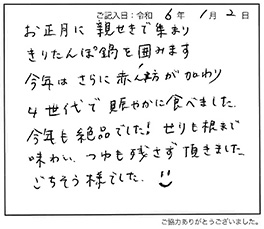 ご記入日：令和 6年 1月 2日
お正月に 親せきで集まり
きりたんぽ鍋を囲みます
今年は さらに 赤ん坊が 加わり
4世代で 賑やかに食べました。
今年も絶品でした! せりも根まで
味わい、つゆも残さず 頂きました
ごちそう様でした。
ご協力ありがとうございました。